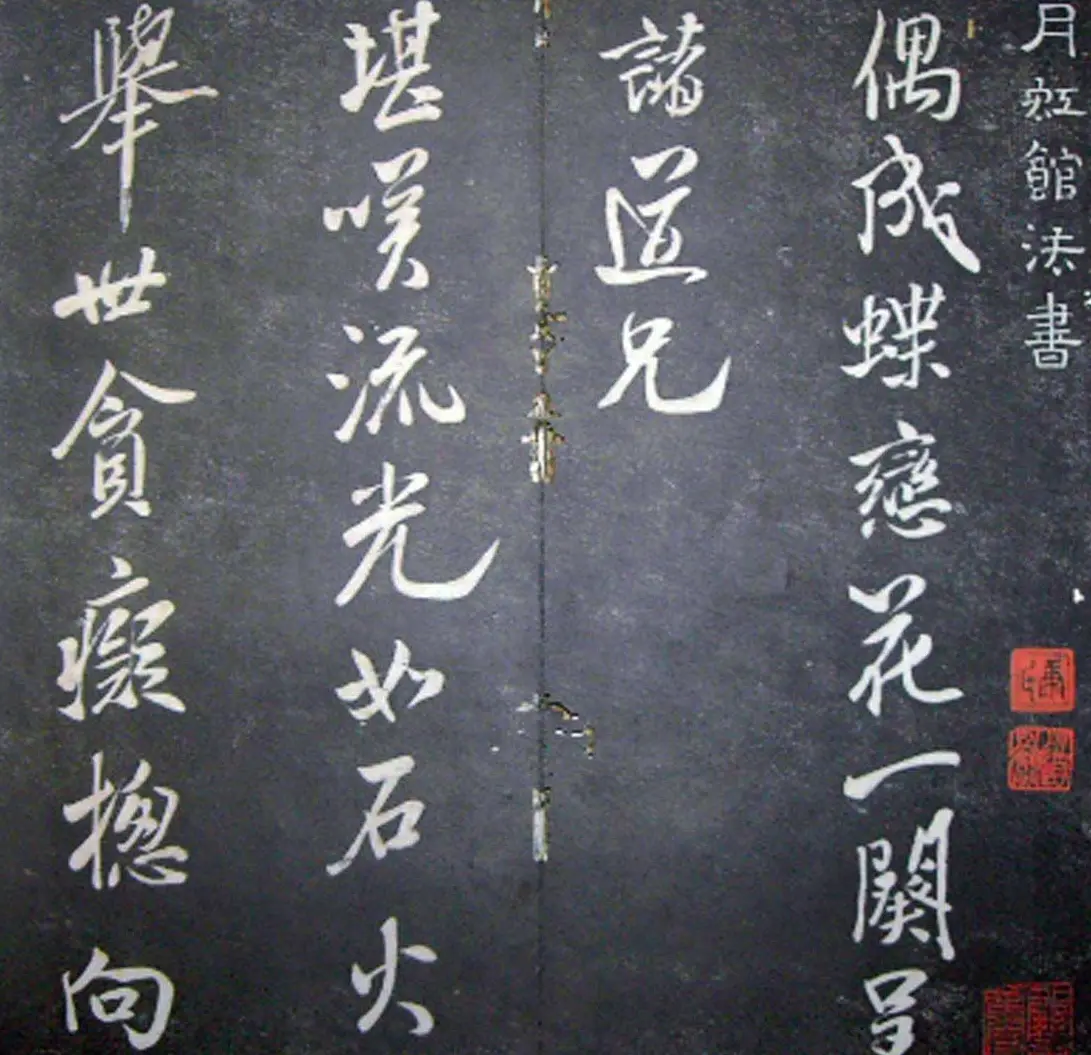 月虹館法書
偶成蝶戀花一闋呈
諸道兄
堪嘆流光如石火
舉世貪癡揔向